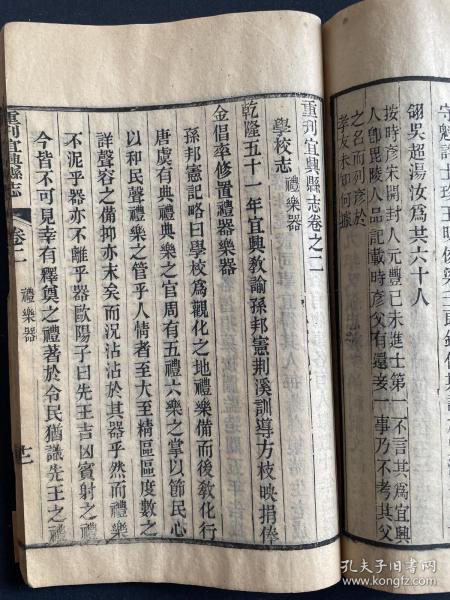 守魁許士珍王時俊第三郎
翎吳超湯汝爲共六十人
按時彥朱開封人元豐己未進士第一不言其爲宜興
人卽毘陵人品記載時彥父有還妾一事乃不考其父
之名而列彥於
孝友未知何據
重刊宜興縣志卷之二
學校志 禮樂器
乾隆五十一年宜興敎諭孫邦憲荆溪訓導方枝映捐俸
金倡率修置禮器樂器
孫邦憲記略曰學校爲觀化之地禮樂備而後敎化行
唐虞有典禮典樂之官周有五禮六樂之掌以節民心
以和民聲禮樂之管乎人情者至大至精區區度數之
詳聲容之備抑亦末矣而况沾沾於其器乎然而禮樂
不泥乎器亦不離乎器歐陽子曰先王吉凶賓射之禮
今皆不可見幸有釋奠之禮著於令民猶識先王之禮
重刊宜興縣志
卷二
禮樂器
孔夫子旧书网
www.kongfz.com